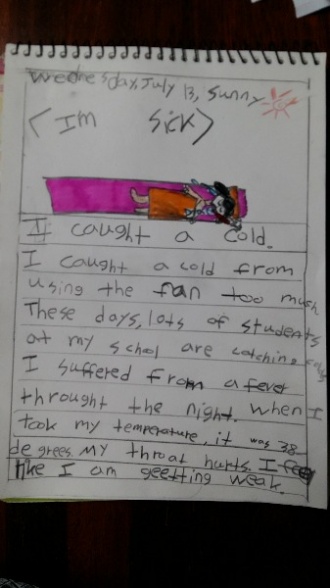 Wednesday, July 13, sunny
<Im sick>
I caught a cold.
I caught a cold from
using the fan too much
These days, lots of students
at my school are catching colds
I suffered from a fever
throught the night. when I
took my temperature, it was 38
degrees. My throat hurts. I feel
like I am geetting weak.